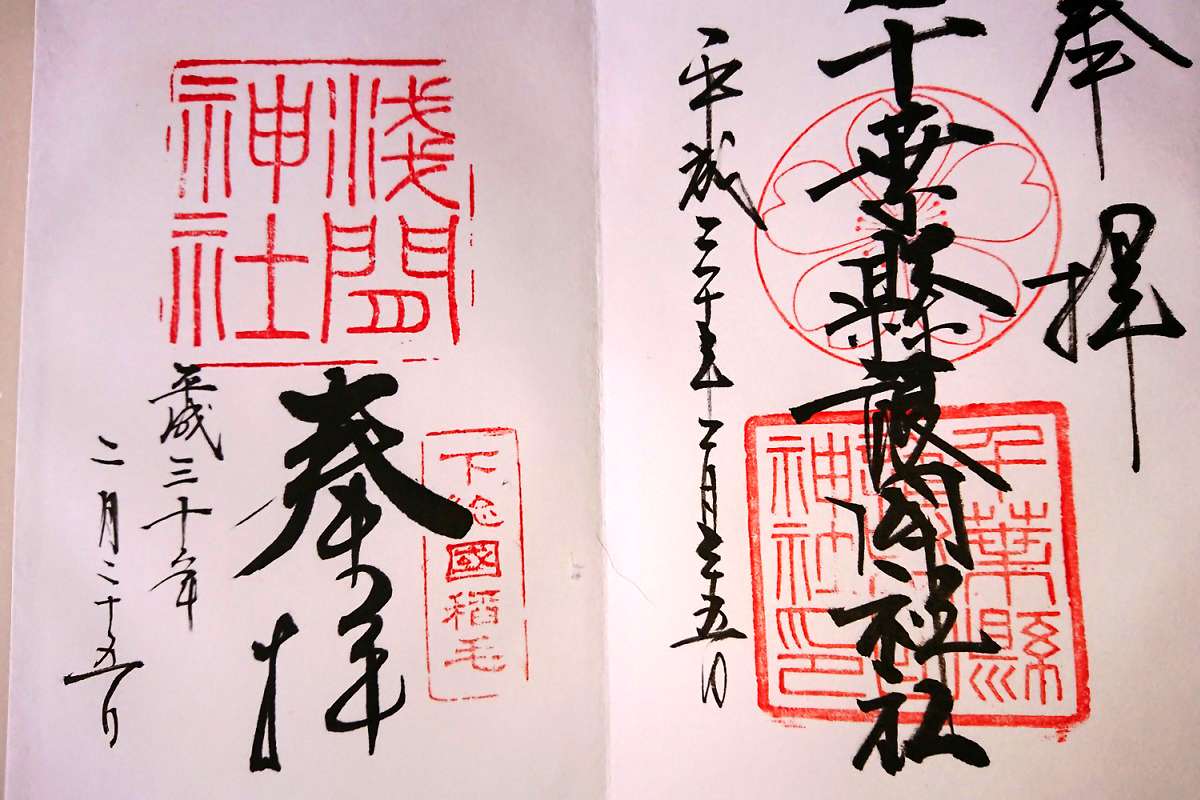 奉拝
千葉縣護國神社
千葉縣
護國
神社印
平成三十年二月二十五日
下総國稲毛
淺間
神社
奉拝
平成三十年
二月二十五日